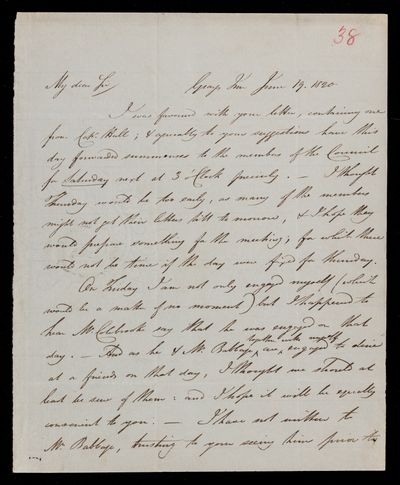 38
My dear Sir
Grays Inn June 19. 1820.
I was favored with your letter, containing one
from Capt. Ball; & agreeably to your suggestions have this
day forwarded summonses to the members of the Council
for Saturday next at 3 o'Clock precisely. — I thought
Thursday would be too early, as many of the members
might not get their letters till to morrow, & I hope they
would prepare something for the meeting; for which there
would not be time if the day were fixed for thursday.
On Friday I am not only engaged myself (which
would be a matter of no moment) but I happened to
hear Mr Colebrooke say that he was engaged on that
day. — And as he & Mr. Babbage, together with myself are, engaged to dine
at a friends on that day, I thought we should at
least be sure of them: and I hope it will be equally
convenient to you. — I have not written to
Mr. Babbage, trusting to your seeing him prior to